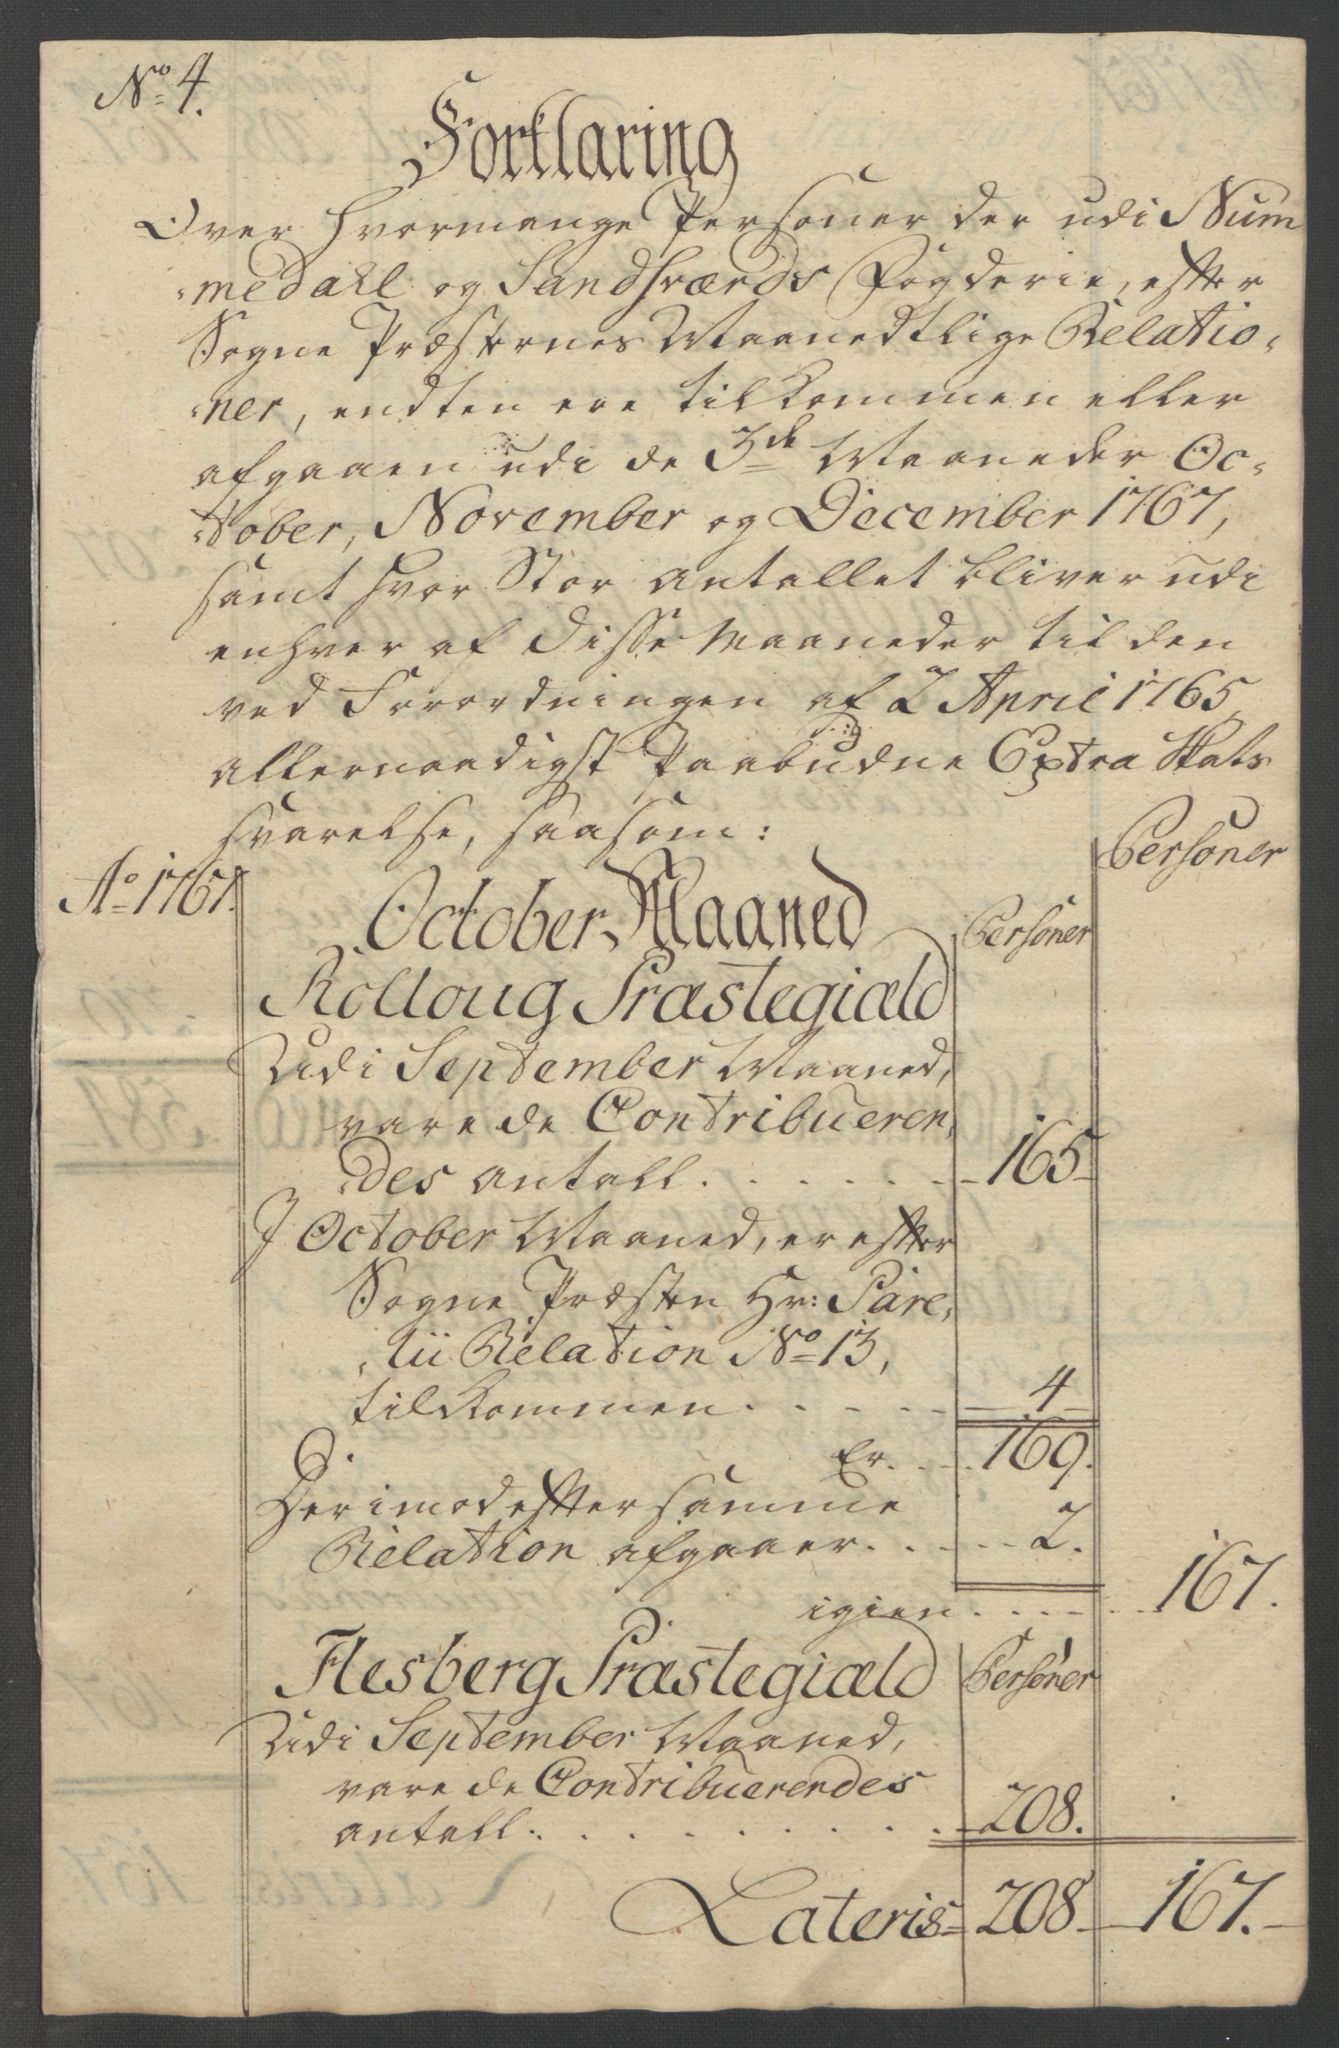 No 4.
Forklaring
Over hvormange Personer der udi Num
medahl og Sandsværds Fogderie, efter
Sogne Præsternes Maanedtlige Relatio,
ner, endten ere tilkommen eller
afgaaen udi de 3de Maaneder Oc,
tober, November og December 1767,
samt hvor Stor antallet bliver udi
enhver af disse Maaneder til den
ved Forordningen af 2 April 1765
allernaadigst Paabudne Extra Skats
svarelse, saasom:
Personer
Ao 1767.
October Maaned
Personer
Rolloug Præstegiæld
Udi September Maaned,
vare de Contribueren,
des antall . . . . . . . 165
J October Maaned, er efter
Sogne Præsten Hr: Pare,
tii Relation No 13,
tilkommen . . . . . . 4
Er . . . 169.
Derimod efter samme
Relation afgaaer . . . . . 2.
igien . . . . . . 167.
Flesberg Præstegiæld
Personer
Udi September Maaned,
vare de Contribuerendes
antall . . . . . . . . . 208.
Lateris 208 167.